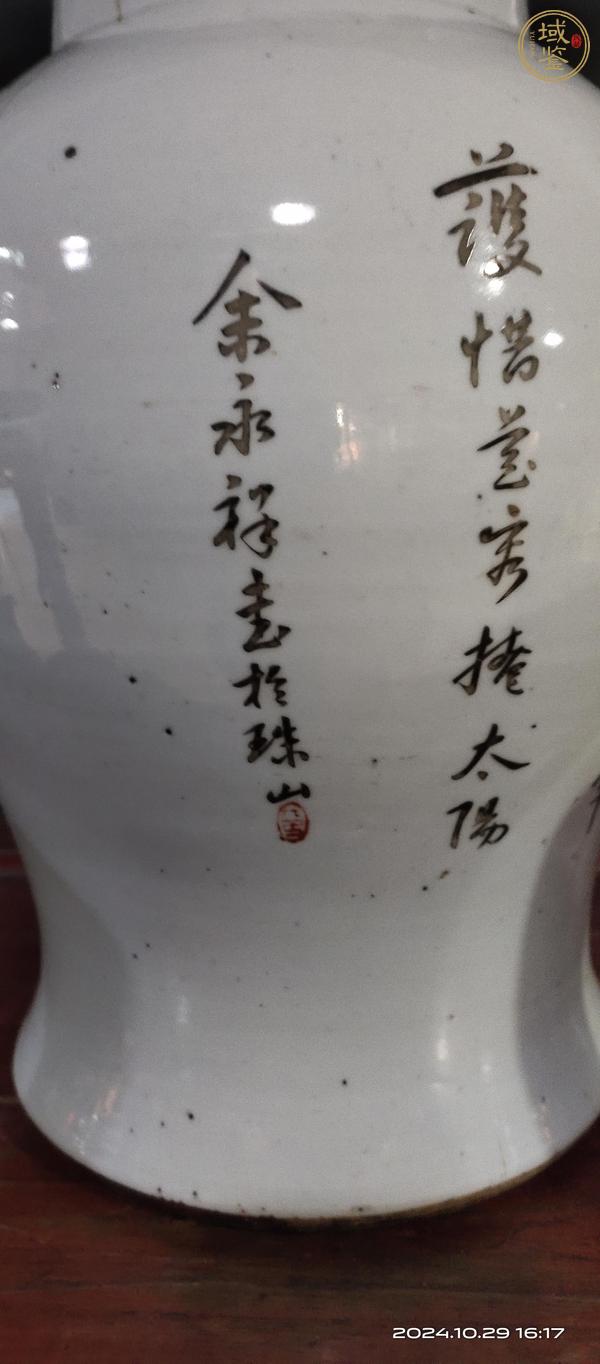 護惜花容捲太陽
余永祥畫於珠山
域鉴
2024.10.29 16:17